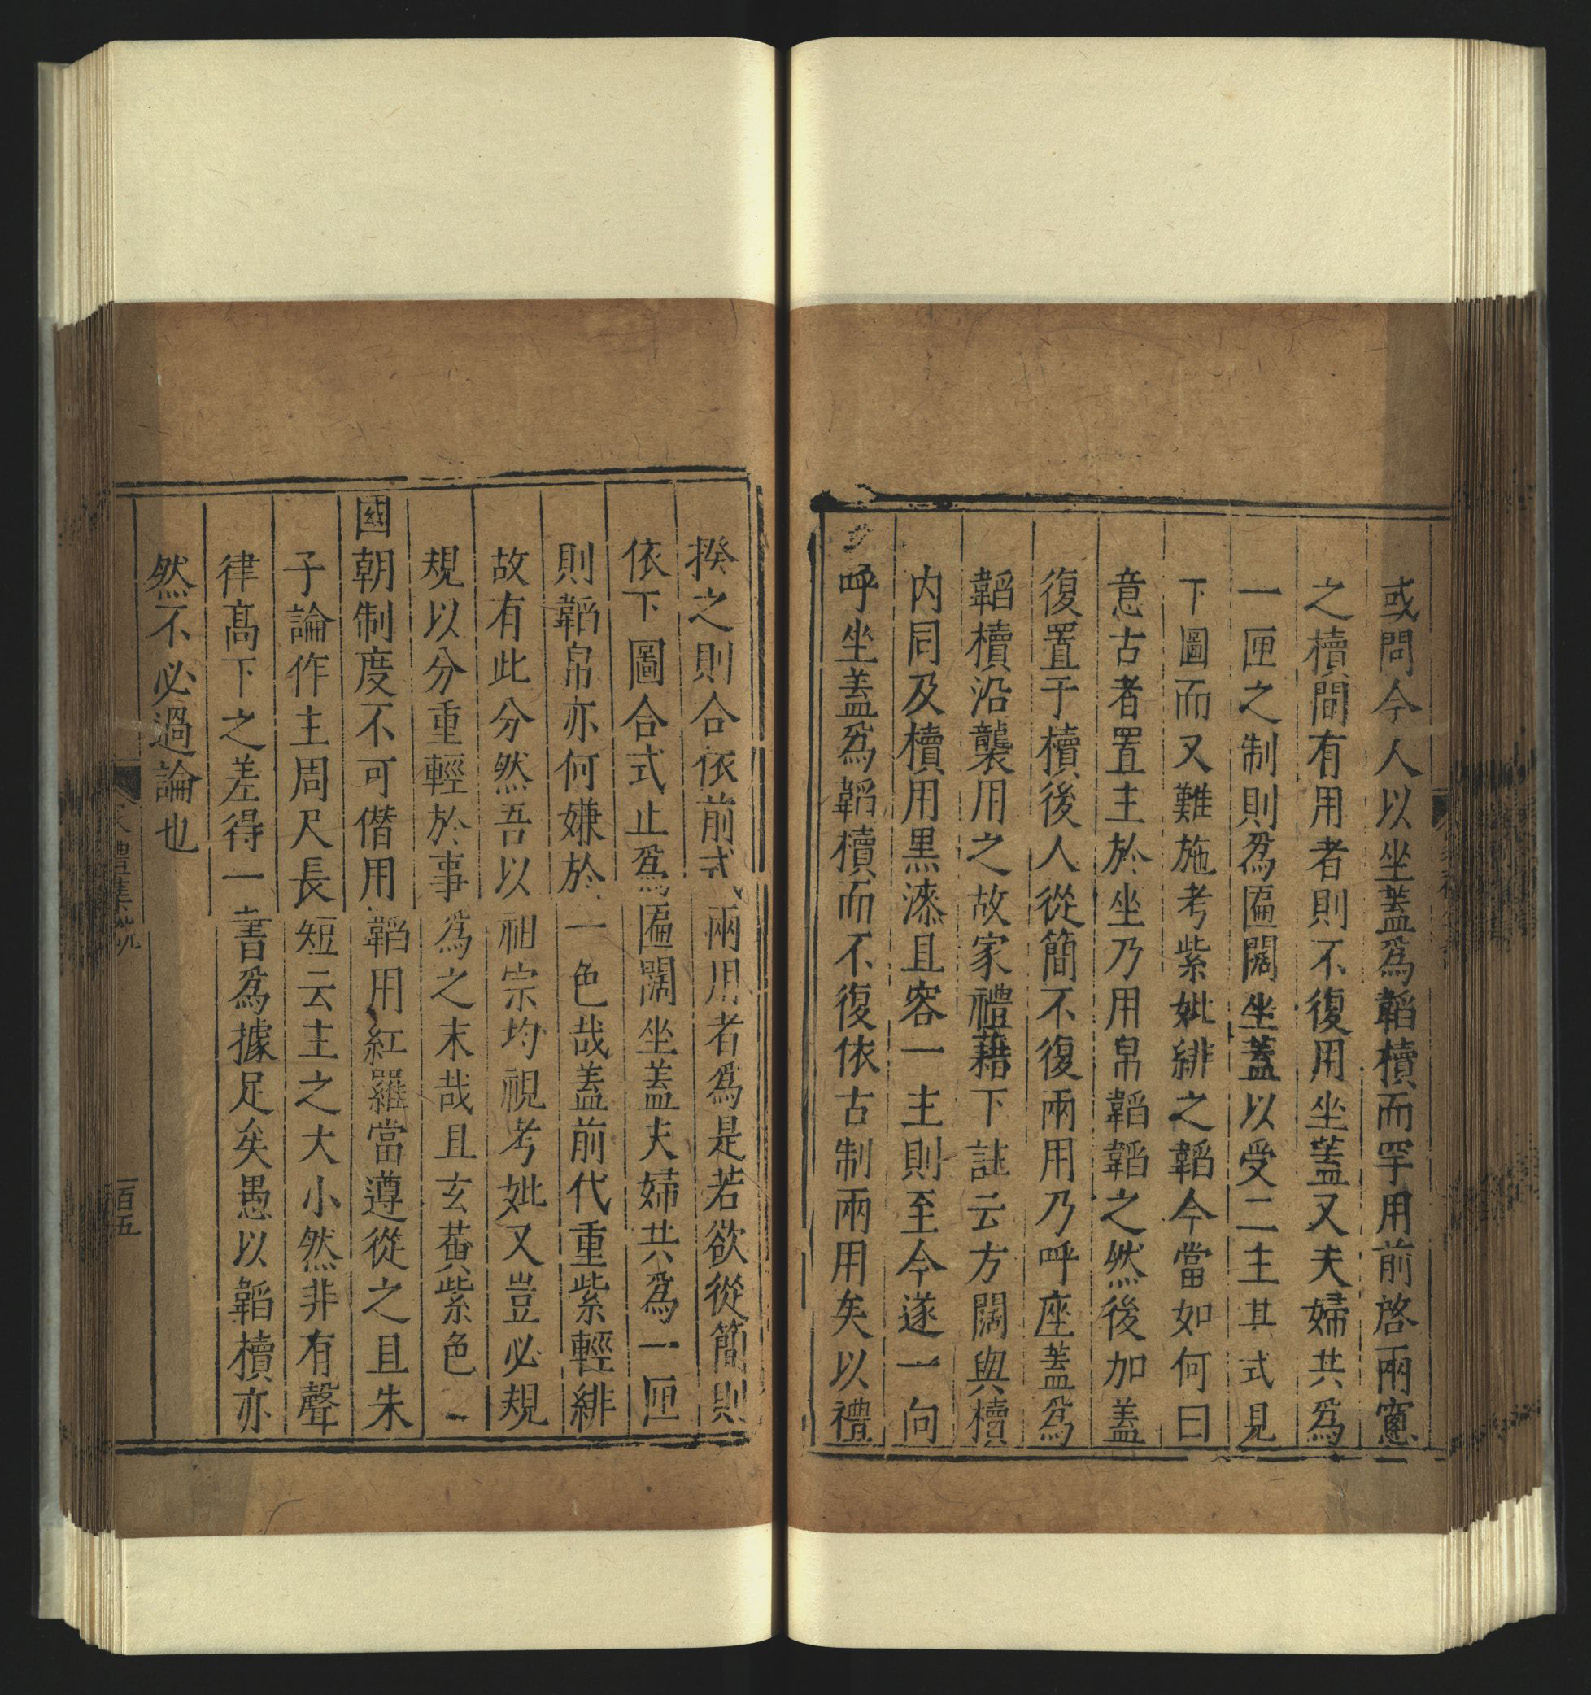 或問今人以坐蓋爲韜櫝而罕用前啓兩窻
之櫝間有用者則不復用坐蓋又夫婦共爲
一匣之制則爲匾闊坐蓋以受二主其式見
下圖而又難施考紫妣緋之韜今當如何曰
意古者置主於坐乃用帛韜韜之然後加蓋
復置于櫝後人從簡不復兩用乃呼座蓋爲
韜櫝沿襲用之故家禮藉下註云方闊與櫝
内同及櫝用黒漆且容一主則至今遂一向
呼坐蓋爲韜櫝而不復依古制兩用矣以禮
揆之則合依前式兩用者爲是若欲從簡則
依下圖合式止爲匾闊坐蓋夫婦共爲一匣
則韜帛亦何嫌於一色哉蓋前代重紫輕緋
故有此分然吾以祖宗均視考妣又豈必規
規以分重輕於事爲之末哉且玄黃紫色一
國朝制度不可僭用韜用紅羅當遵從之且朱
子論作主周尺長短云主之大小然非有聲
律髙下之差得一書爲據足矣愚以韜櫝亦
然不必過論也
家禮集説
一百五